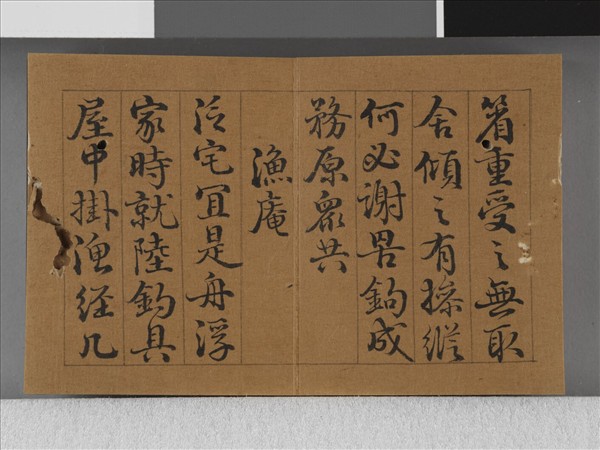 箵重受之無取
舍傾之有操縱
何必謝罟鉤成
務原眾共
漁庵
泛宅宜是舟浮
家時就陸釣具
屋中掛漁経几